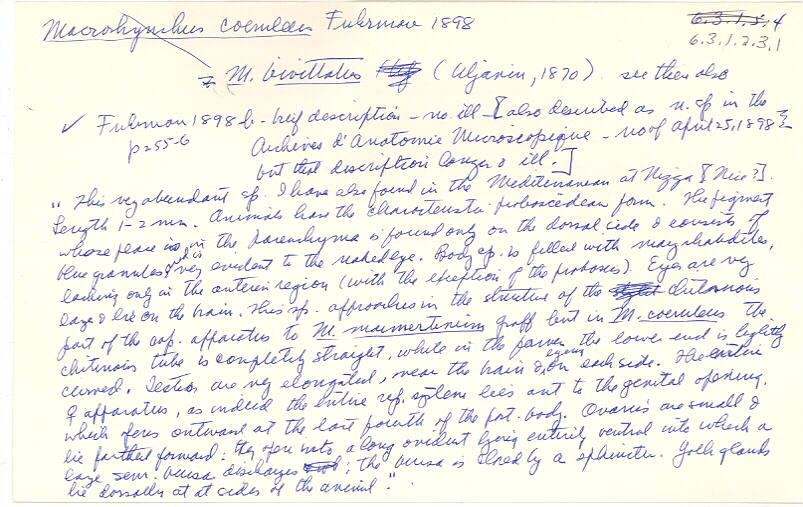 Macrorhynchus coeruleus Fuhrman 1898
6.3.1.5.4
6.3.1.2.3.1
= M. bivittatus (Uljanin, 1870). see then also
✓ Fuhrman 1898 b - brief description - no ill - [also described as n. sp in the
p 255-6 Archives d'Anatomie Microscopique - no of April 25, 1898
but that description longer & ill.]
"This very abundant sp. I have also found in the Mediterranean at Nizza [Nice?].
Length 1-2 mm. Animals have the characteristic proboscidean form. The pigment
whose place is in the parenchyma is found only on the dorsal side & consists of
blue granules & which is very evident to the naked eye. Body ep. is filled with many rhabdites,
lacking only in the anterior region (with the exception of the proboscis). Eyes are very
large & lie on the brain. This sp. approaches in the structure of the chitinous
part of the cop. apparatus to M. mamertinus Graff but in M. coeruleus the
chitinous tube is completely straight, while in the former the lower end is lightly
curved. Testes are very elongated, near the brain & lying on each side. The entire
♀ apparatus, as indeed the entire rep. system lies ant to the genital opening,
which opens outward at the last fourth of the post. body. Ovaries are small &
lie farthest forward; they open into a long oviduct lying entirely ventral into which a
large sem. bursa discharges; the bursa is closed by a sphincter. Yolk glands
lie dorsally at at sides of the animal".